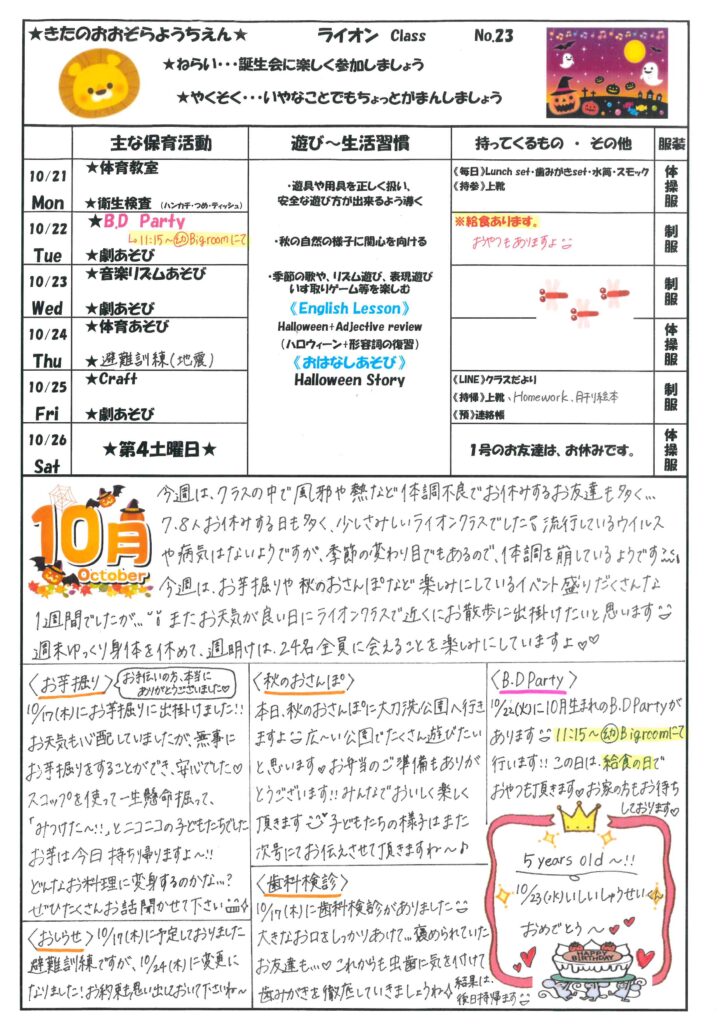 ★きたのおおぞらようちえん★ ライオン Class No.23
★ねらい・・・誕生会に楽しく参加しましょう
★やくそく・・・いやなことでもちょっとがまんしましょう
主な保育活動 遊び～生活習慣 持ってくるもの ・ その他 服装
10/21 Mon
★体育教室
★衛生検査 (ハンカチ・つめ・ティッシュ)
・遊具や用具を正しく扱い、
安全な遊び方が出来るよう導く
《毎日》Lunch set・歯みがきset・水筒・スモック
《持参》上靴
体操服
10/22 Tue
★B.D Party
↳11:15～㊛Bigroomにて
★劇あそび
・秋の自然の様子に関心を向ける
※給食あります。
おやつもありますよ
制服
10/23 Wed
★音楽リズムあそび
★劇あそび
・季節の歌や、リズム遊び、表現遊び
いす取りゲーム等を楽しむ
《English Lesson》
制服
10/24 Thu
★体育あそび
★避難訓練(地震)
Halloween+Adjective review
(ハロウィーン+形容詞の復習)
《おはなしあそび》
体操服
10/25 Fri
★Craft
★劇あそび
Halloween Story
《LINE》クラスだより
《持帰》上靴、Homework、月刊絵本
《預》連絡帳
制服
10/26 Sat
★第4土曜日★
1号のお友達は、お休みです。
体操服
10月
October
今週は、クラスの中で風邪や熱など体調不良でお休みするお友達も多く…
7.8人お休みする日も多く、少しさみしいライオンクラスでした 流行しているウイルス
や病気はないようですが、季節の変わり目でもあるので、体調を崩しているようです
今週は、お芋掘りや秋のおさんぽなど楽しみにしているイベント盛りだくさんな
1週間でしたが… またお天気が良い日にライオンクラスで近くにお散歩に出掛けたいと思います
週末ゆっくり身体を休めて、週明けは、24名全員に会えることを楽しみにしていますよ♡♡
〈お芋掘り〉
お手伝いの方、本当に
ありがとうございました♡
10/17(木)にお芋掘りに出掛けました!!
お天気も心配していましたが、無事に
お芋掘りをすることができ、安心でした♡
スコップを使って一生懸命掘って、
「みつけた～!!」とニコニコの子どもたちでした
お芋は今日持ち帰りますよ～!!
どんなお料理に変身するのかな…?
ぜひたくさんお話聞かせて下さい
〈おしらせ〉10/17(木)に予定しておりました
避難訓練ですが、10/24(木)に変更に
なりました!お約束も思い出しておいて下さいね～
〈秋のおさんぽ〉
本日、秋のおさんぽに大刀洗公園へ行き
ますよ 広～い公園でたくさん遊びたい
と思います お弁当のご準備もありが
とうございます!!みんなでおいしく楽しく
頂きます 子どもたちの様子はまた
次号にてお伝えさせて頂きますね～♪
〈歯科検診〉
10/17(木)に歯科検診がありました
大きなお口をしっかりあけて…褒められていた
お友達も…♡これからも虫歯に気を付けて
歯みがきを徹底していきましょうね
結果は、
後日持帰ります
〈B.D Party〉
10/22(火)に10月生まれのB.D Partyが
あります 11:15～㊛Bigroomにて
行います!!この日は、給食の日で
おやつも頂きます♡お家の方もお待ち
しております♡
5 years old～!!
10/23(水)いしいしゅうせいくん
おめでとう～♡
HAPPY
BIRTHDAY